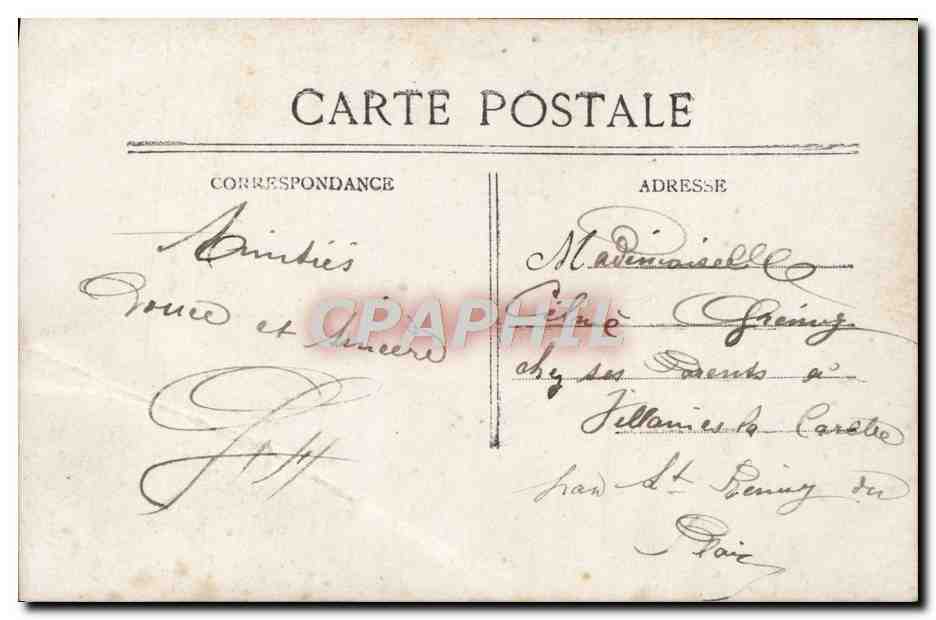 CARTE POSTALE
CORRESPONDANCE
ADRESSE
Amitiés
Douce et Sincère
Mademoiselle
chez ses Parents à
Villaines la Carelle
par St Rémy du
Plain
CPAPHIL